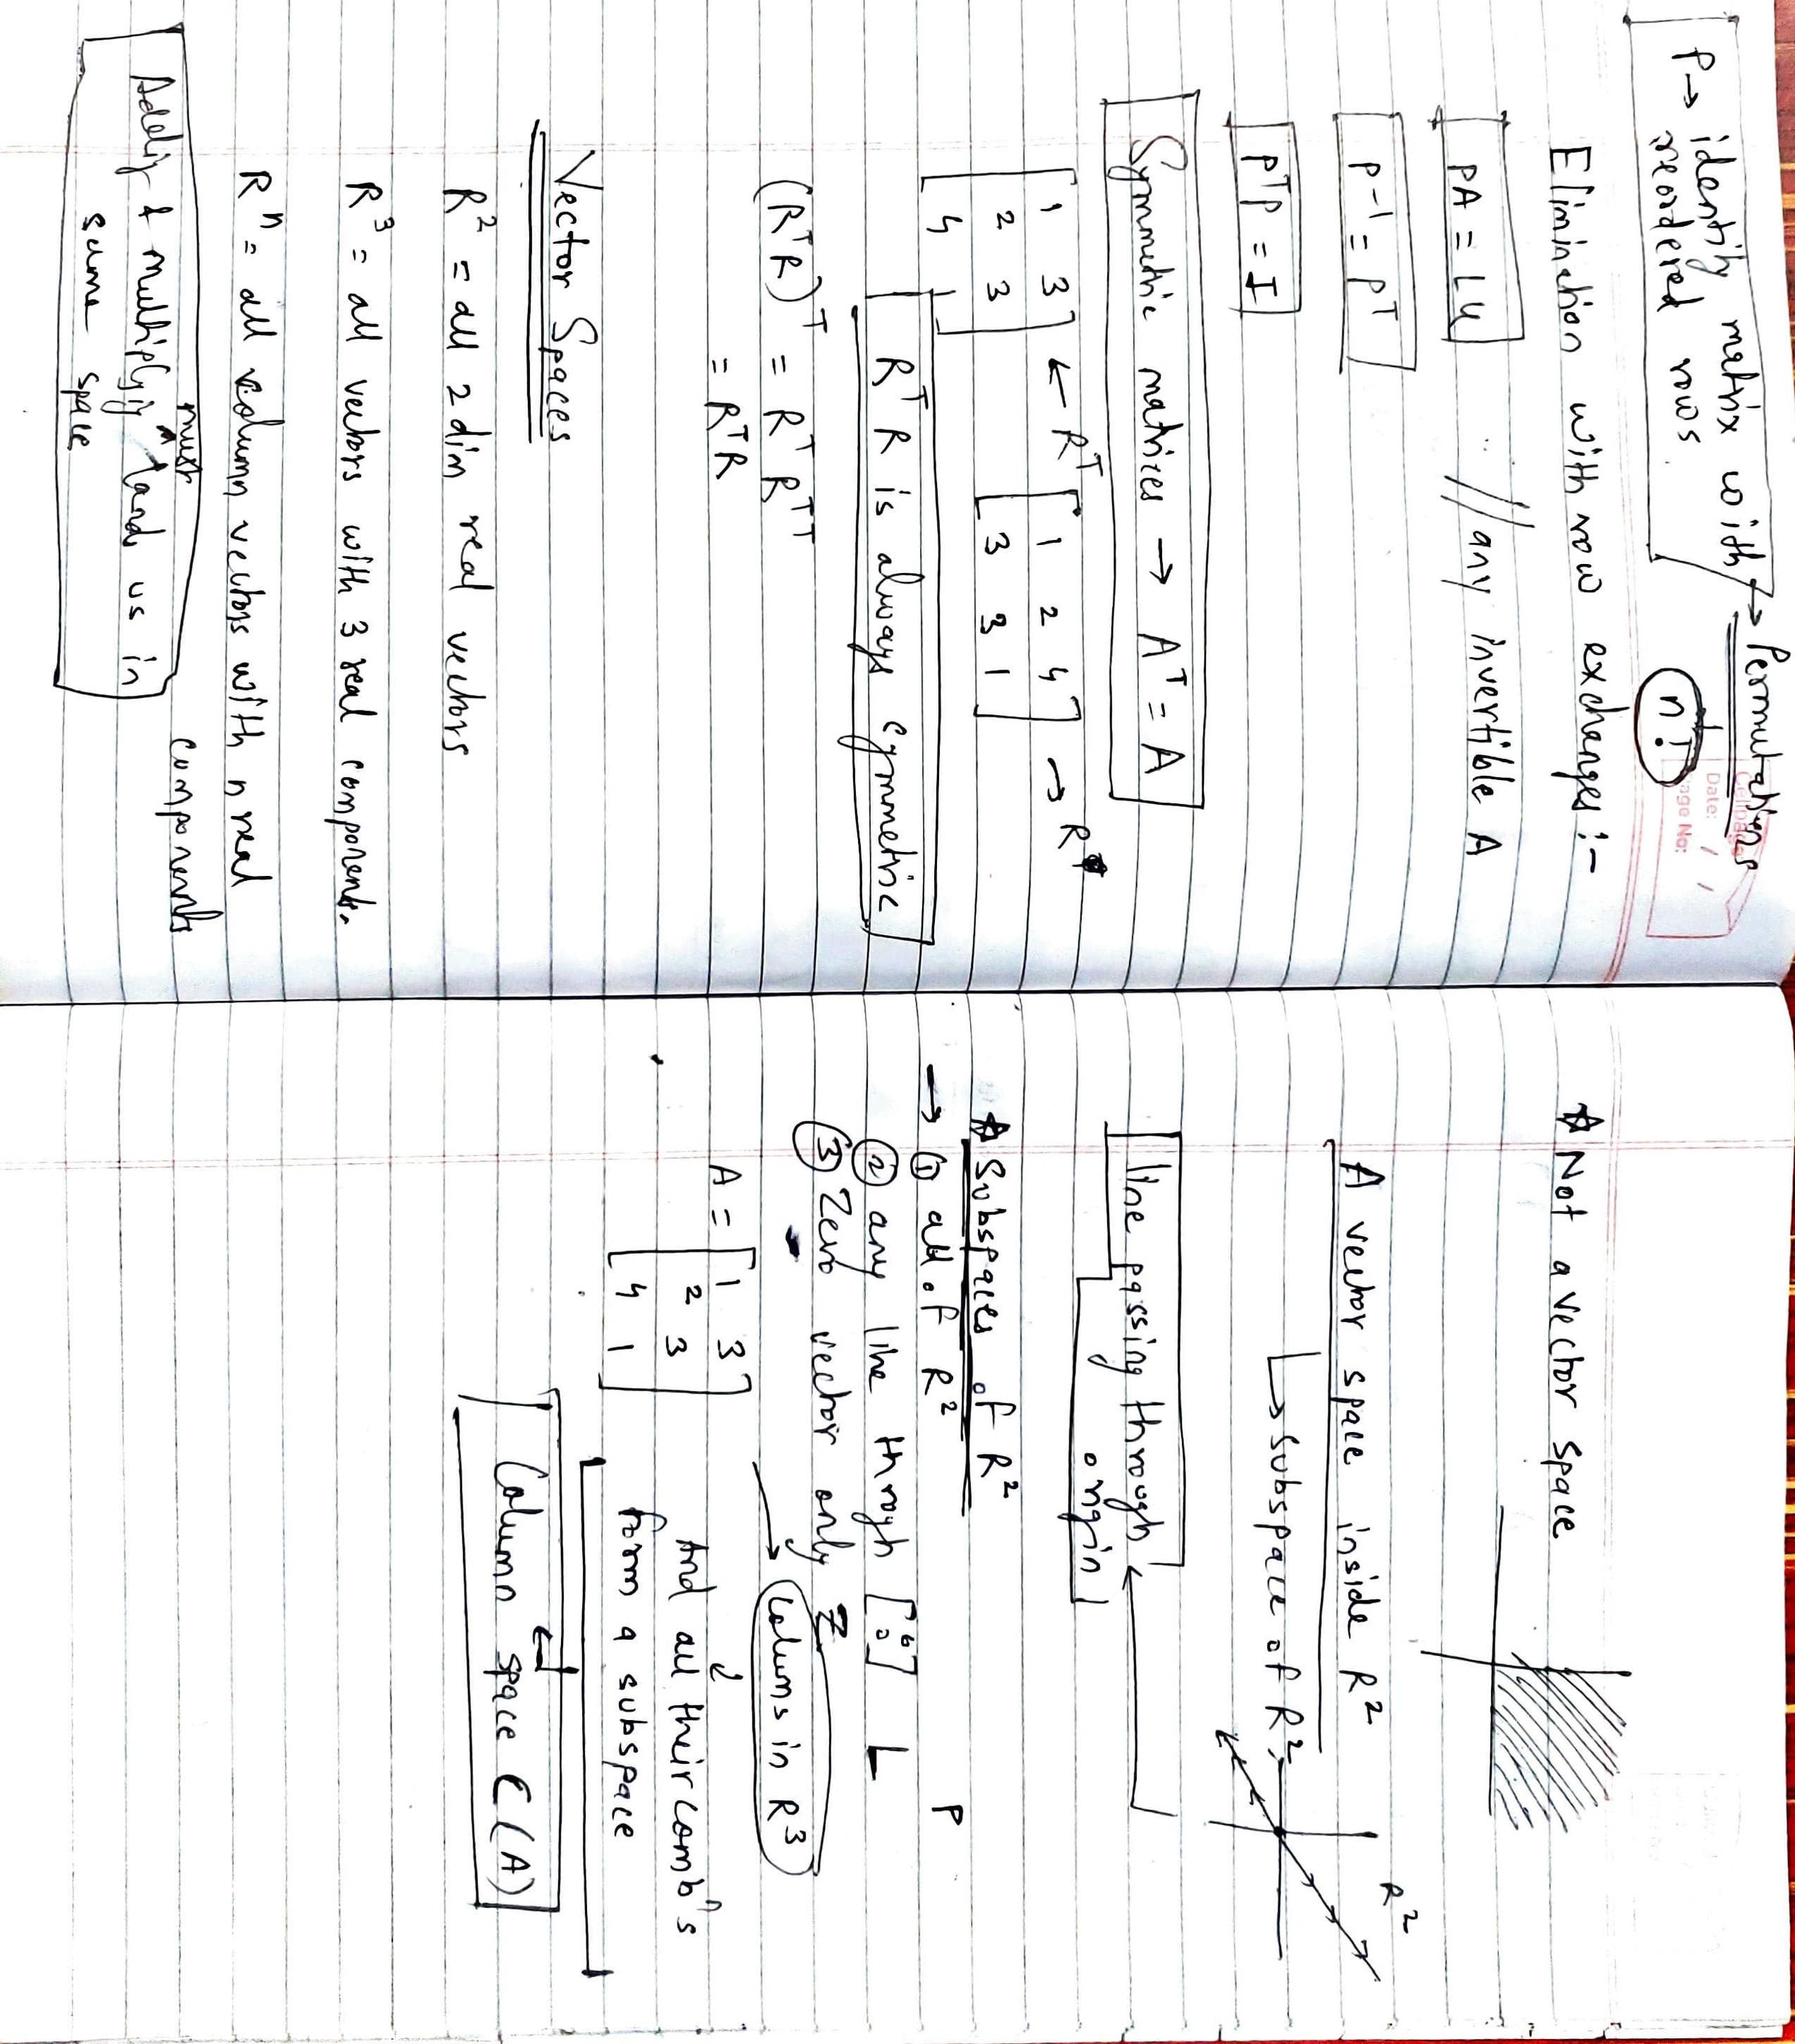 P → identity matrix with → Permutations
reordered rows.
n!
Date: / /
age No:
Elimination with row exchanges :-
PA = LU // any invertible A
P⁻¹ = Pᵀ
PᵀP = I
Symmetric matrices → Aᵀ = A
[1 3 ← Rᵀ [1 2 4] → R
2 3 3 3 1]
4 1]
RᵀR is always symmetric
(RᵀR)ᵀ = RᵀRᵀᵀ
= RᵀR
Vector Spaces
R² = all 2 dim real vectors
R³ = all vectors with 3 real components.
Rⁿ = all column vectors with n real
components
must
Addig & multiplyig ^ land us in
same space
☆ Not a vector space
A vector space inside R²
R²
↳ Subspace of R²
line passing through ←
origin
☆ Subspaces of R²
→ ① all of R² P
② any line throgh [0 0] L
③ Zero vector only Z
→ Colums in R³
A = [1 3
2 3
4 1]
And all their combⁿs
form a subspace
Column space C(A)